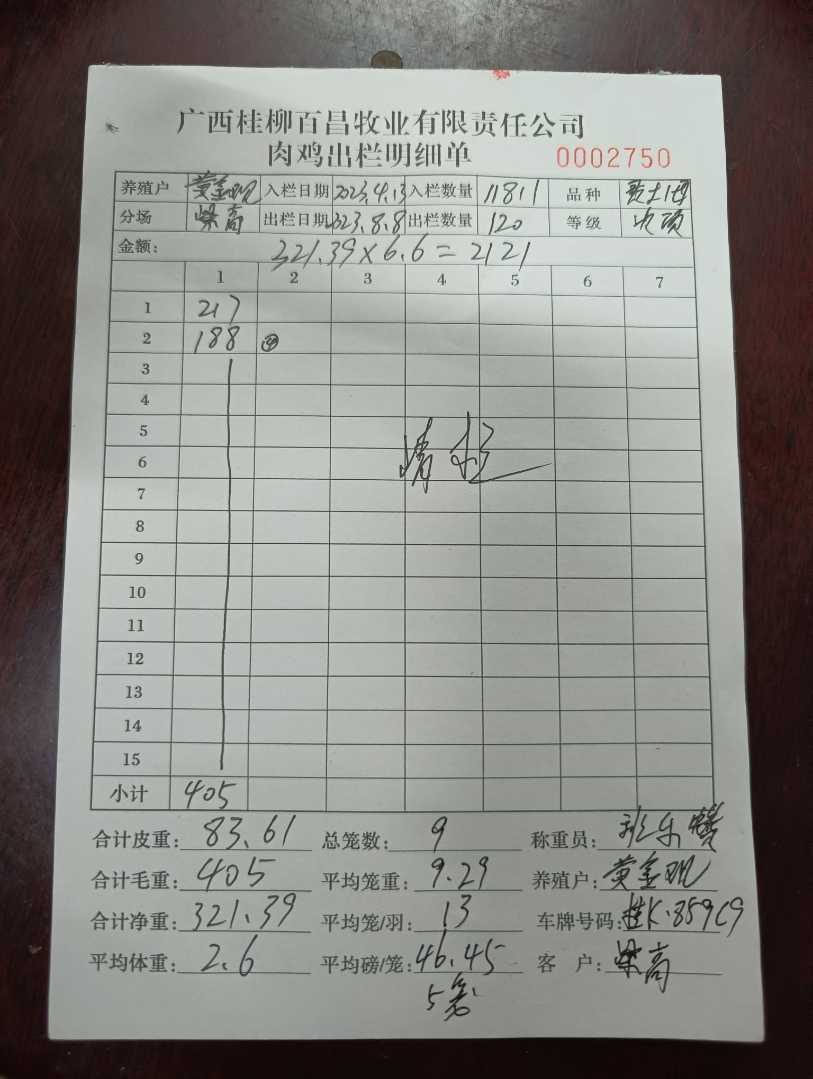 广西桂柳百昌牧业有限责任公司
肉鸡出栏明细单 0002750
养殖户 黄金观 入栏日期 2023.4.13 入栏数量 11811 品种
分场 梁高 出栏日期 2023.8.8 出栏数量 120 等级 次项
金额: 321.39×6.6=2121
1 2 3 4 5 6 7
1 217
2 188 ④
3
4
5
清栏
6
7
8
9
10
11
12
13
14
15
小计 405
合计皮重: 83.61 总笼数: 9 称重员:
合计毛重: 405 平均笼重: 9.29 养殖户: 黄金观
合计净重: 321.39 平均笼/羽: 13 车牌号码: 桂K·859C9
平均体重: 2.6 平均磅/笼: 46.45 客 户: 梁高
5笼